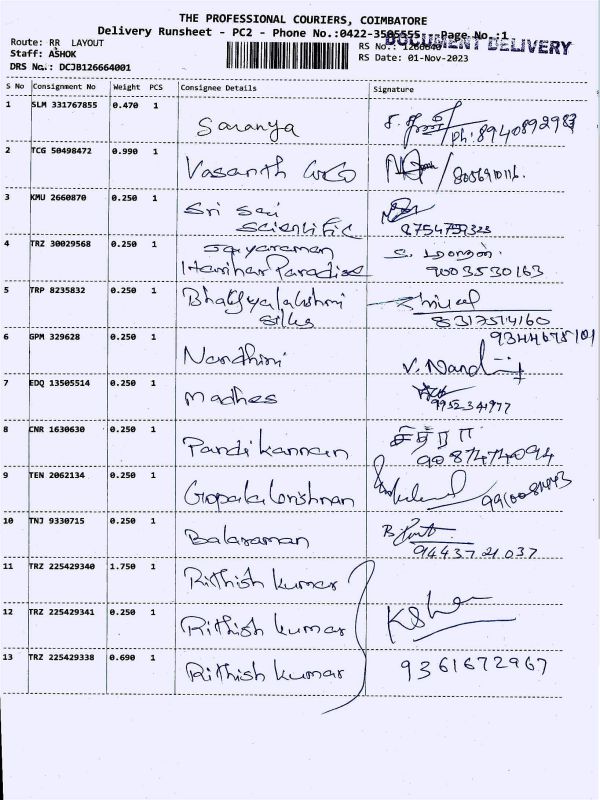 THE PROFESSIONAL COURIERS, COIMBATORE
Delivery Runsheet - PC2 - Phone No.:0422-3505555 Page No.:1
Route: RR LAYOUT
DOCUMENT DELIVERY
Staff: ASHOK
RS No.: 1266640
DRS No.: DCJB126664001
RS Date: 01-Nov-2023
S No Consignment No Weight PCS Consignee Details Signature
1 SLM 331767855 0.470 1 Saranya
Ph: 8940892983
2 TCG 50498472 0.990 1 Vasanth
8056910116.
3 KMU 2660870 0.250 1 Sri Sai
Scientific
8754759323
4 TRZ 30029568 0.250 1 Jayaraman
Harihar Paradise
9003530163
5 TRP 8235832 0.250 1 Bhagyalakshmi
Silks
8317514160
6 GPM 329628 0.250 1 Nandhini V. Nandhini
9344675101
7 EDQ 13505514 0.250 1 Madhes
9952341977
8 CNR 1630630 0.250 1 Pandi kannan சித்ரா
9087474094
9 TEN 2062134 0.250 1 Gopalakrishnan
10 TNJ 9330715 0.250 1 Balaraman
9443721037
11 TRZ 225429340 1.750 1 Rithish kumar
12 TRZ 225429341 0.250 1 Rithish kumar
13 TRZ 225429338 0.690 1 Rithish kumar 9361672967